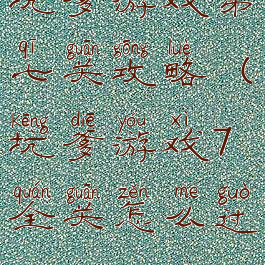 坑爹游戏第
qī guān gōng lüè
七关攻略(
kēng diē yóu xì
坑爹游戏7
quán guān zěn me guò
全关怎么过